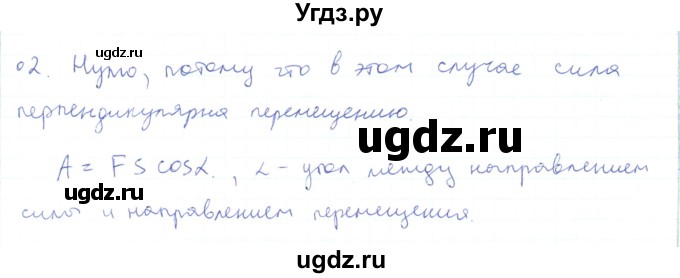 Угдз.ру
o2. Нулю, потому что в этом случае сила
перпендикулярна перемещению.
ugdz.ru
ugdz.ru
ugdz.ru
A = F S cosα. , α - угол между направлением
силы и направлением перемещения.
ugdz.ru
ugdz.ru
ugdz.ru